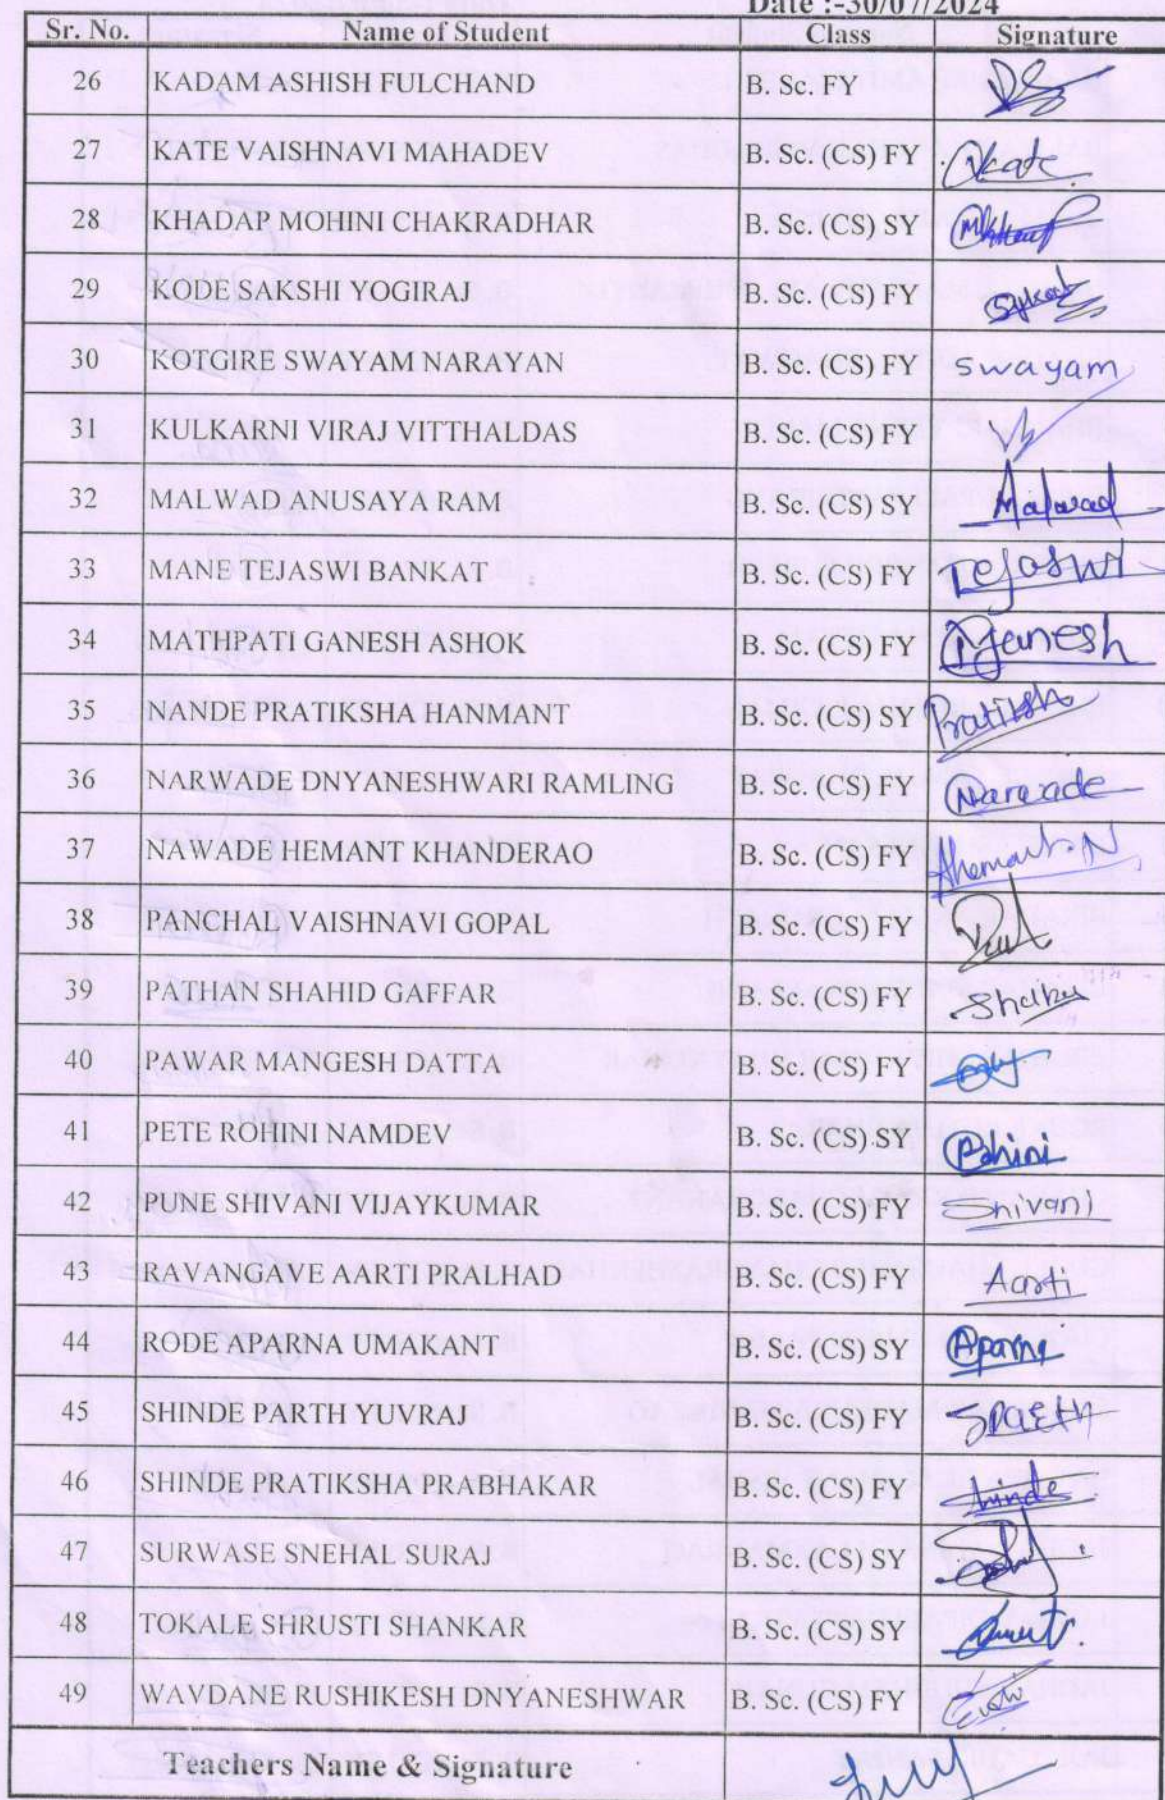 Date :-30/07/2024
Sr. No. Name of Student Class Signature
26 KADAM ASHISH FULCHAND B. Sc. FY
27 KATE VAISHNAVI MAHADEV B. Sc. (CS) FY Vkate
28 KHADAP MOHINI CHAKRADHAR B. Sc. (CS) SY
29 KODE SAKSHI YOGIRAJ B. Sc. (CS) FY
30 KOTGIRE SWAYAM NARAYAN B. Sc. (CS) FY swayam
31 KULKARNI VIRAJ VITTHALDAS B. Sc. (CS) FY
32 MALWAD ANUSAYA RAM B. Sc. (CS) SY Malwad
33 MANE TEJASWI BANKAT B. Sc. (CS) FY Tejaswi
34 MATHPATI GANESH ASHOK B. Sc. (CS) FY Ganesh
35 NANDE PRATIKSHA HANMANT B. Sc. (CS) SY Pratiksha
36 NARWADE DNYANESHWARI RAMLING B. Sc. (CS) FY Narwade
37 NAWADE HEMANT KHANDERAO B. Sc. (CS) FY Hemant.N
38 PANCHAL VAISHNAVI GOPAL B. Sc. (CS) FY
39 PATHAN SHAHID GAFFAR B. Sc. (CS) FY
40 PAWAR MANGESH DATTA B. Sc. (CS) FY
41 PETE ROHINI NAMDEV B. Sc. (CS) SY Rohini
42 PUNE SHIVANI VIJAYKUMAR B. Sc. (CS) FY Shivani
43 RAVANGAVE AARTI PRALHAD B. Sc. (CS) FY Aarti
44 RODE APARNA UMAKANT B. Sc. (CS) SY Aparna
45 SHINDE PARTH YUVRAJ B. Sc. (CS) FY SParth
46 SHINDE PRATIKSHA PRABHAKAR B. Sc. (CS) FY Shinde
47 SURWASE SNEHAL SURAJ B. Sc. (CS) SY
48 TOKALE SHRUSTI SHANKAR B. Sc. (CS) SY
49 WAVDANE RUSHIKESH DNYANESHWAR B. Sc. (CS) FY
Teachers Name & Signature